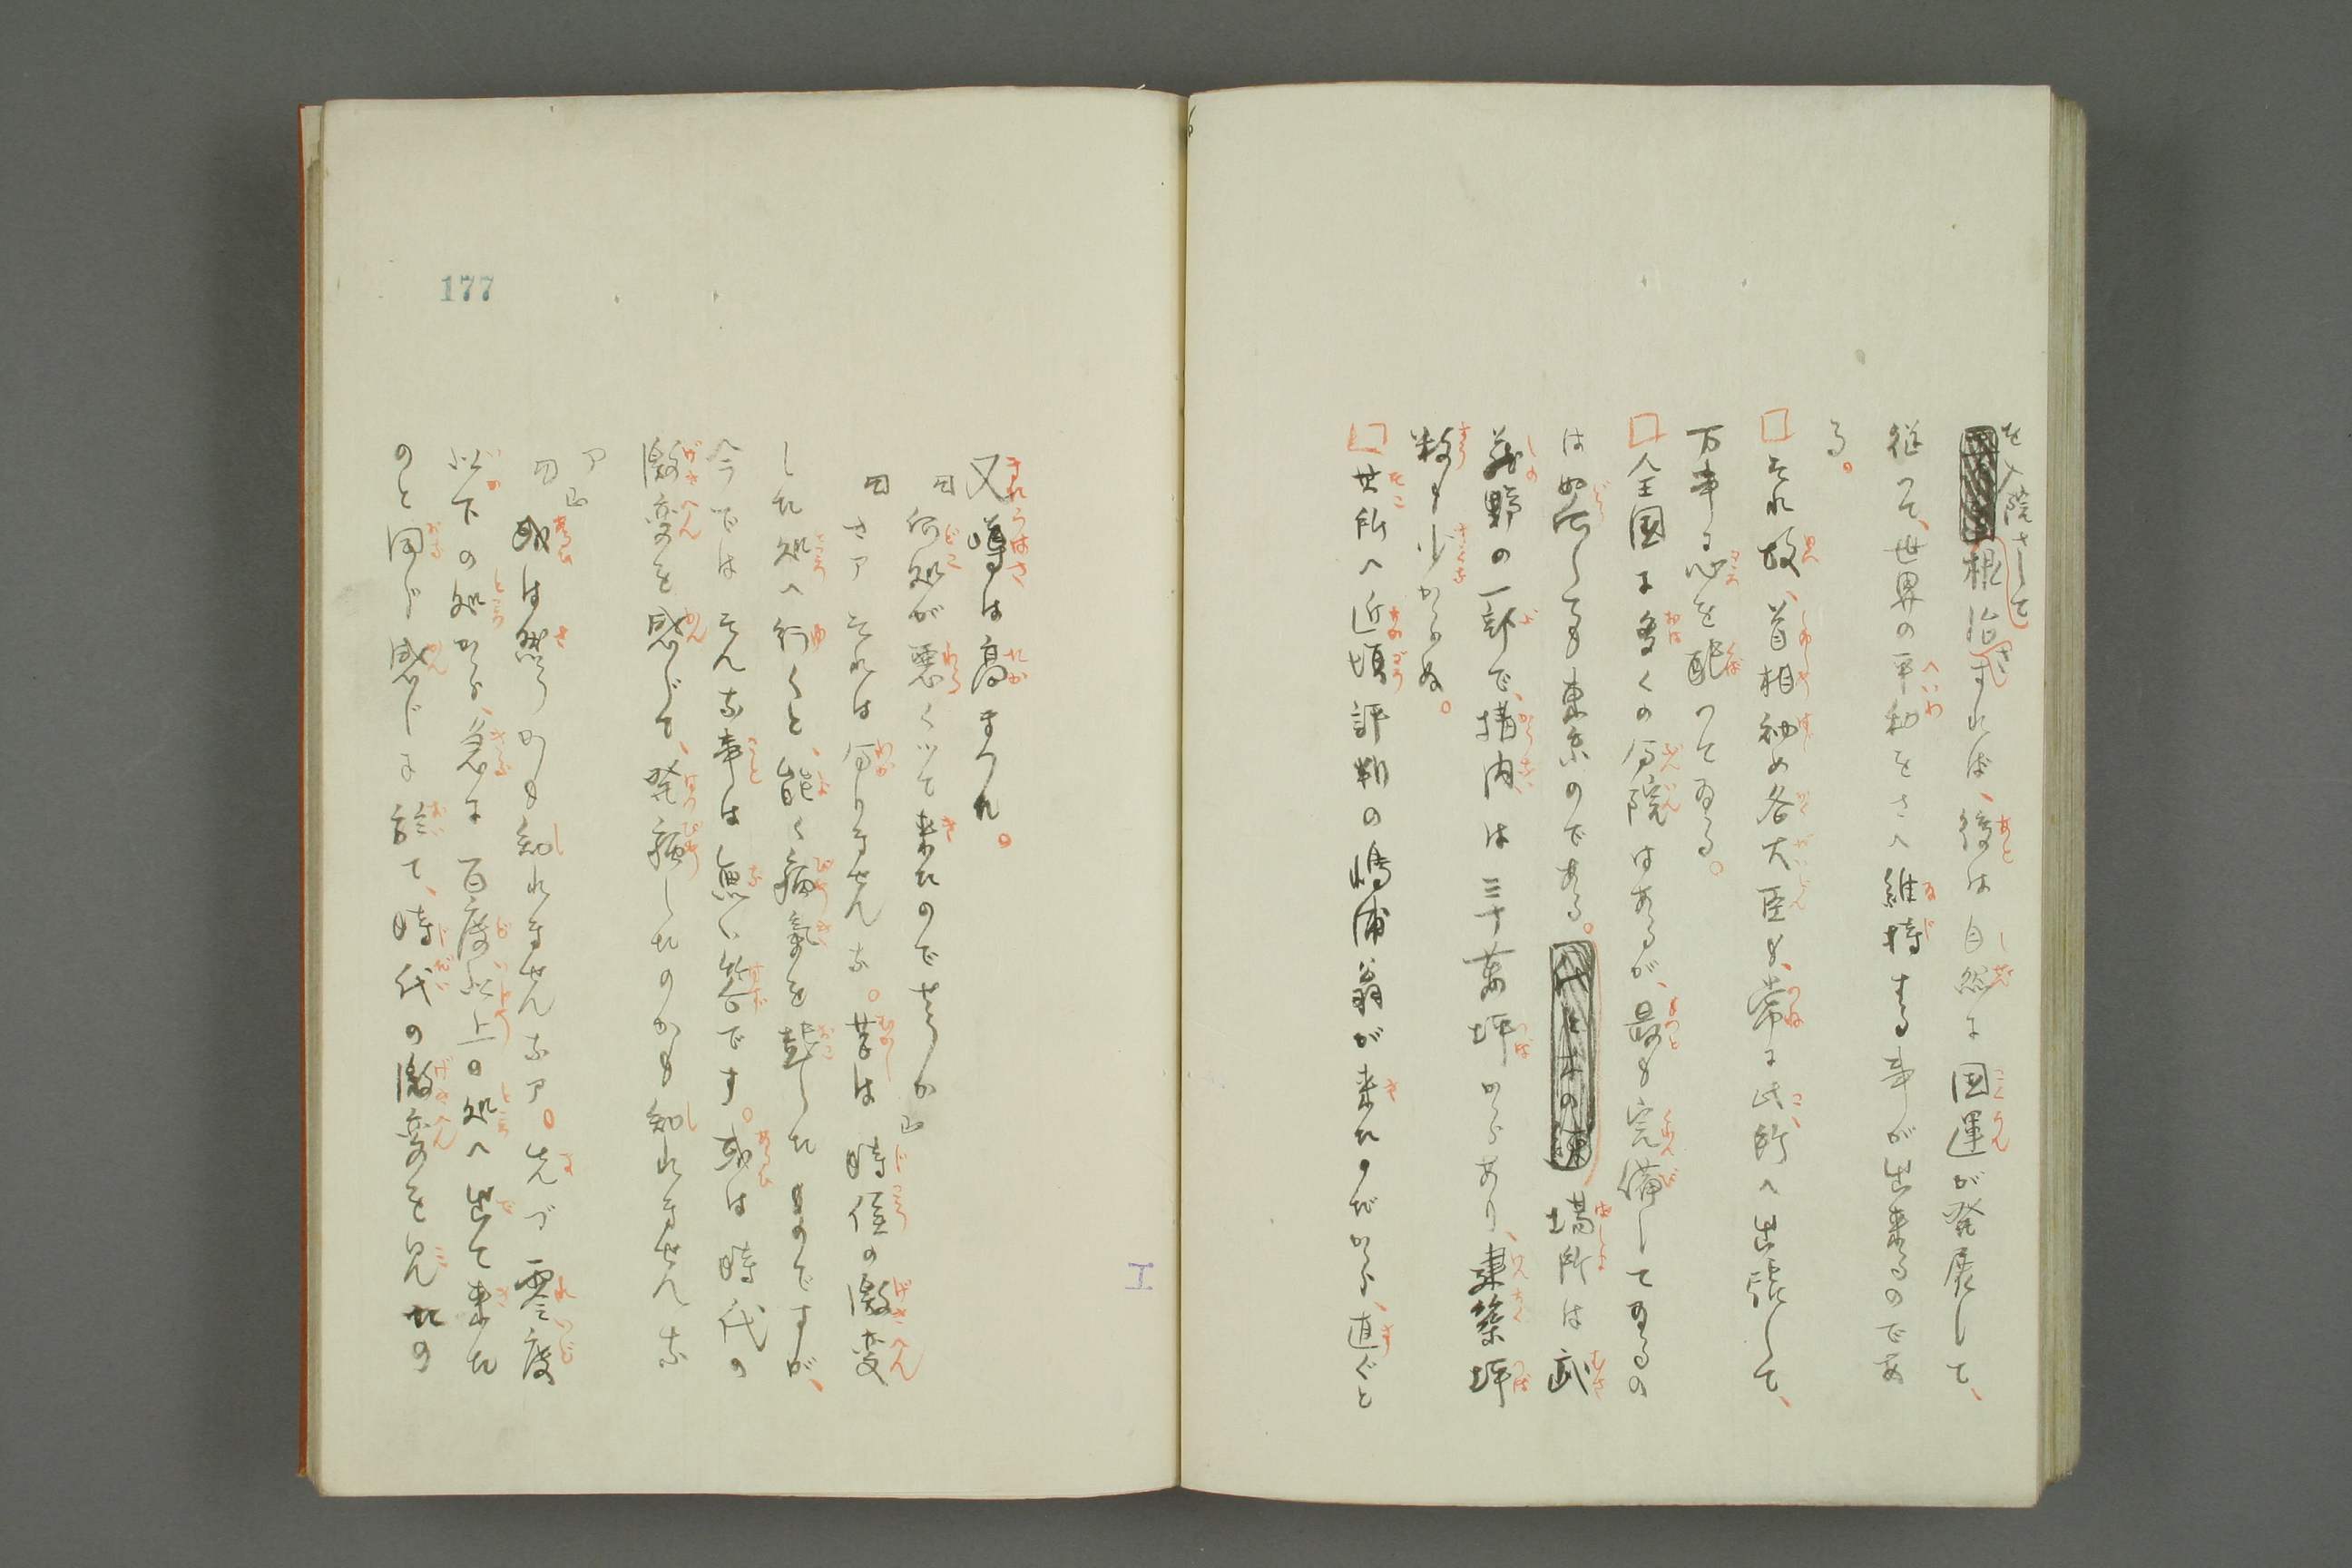 を入院さして
根治すれば、後は自然に国運が発展して、
従つて、世界の平和をさへ維持する事が出来るのであ
る。
□それ故、首相初め各大臣も、常に此所へ出張して、
万事に心を配つてゐる。
□全国に多くの分院はあるが、最も完備してゐるの
は如何しても東京のである。場所は武
蔵野の一部で、構内は三十萬坪からあり、建築坪
数も少からぬ。
□其所へ近頃評判の嶋浦翁が来たのだから、直ぐと
又噂は高まつた。
「何処が悪くツて来たのでせうか」
「さアそれは分りませんな。昔は時候の激変
した処へ行くと、能く病気を起したものですが、
今ではそんな事は無い筈です。或は時代の
激変を感じて、発病したのかも知れませんな
ア」
「或は然うかも知れませんなア。先づ零度
以下の処から、急に百度以上の処へ出て来た
のと同じ感じに於て、時代の激変を見たの
177